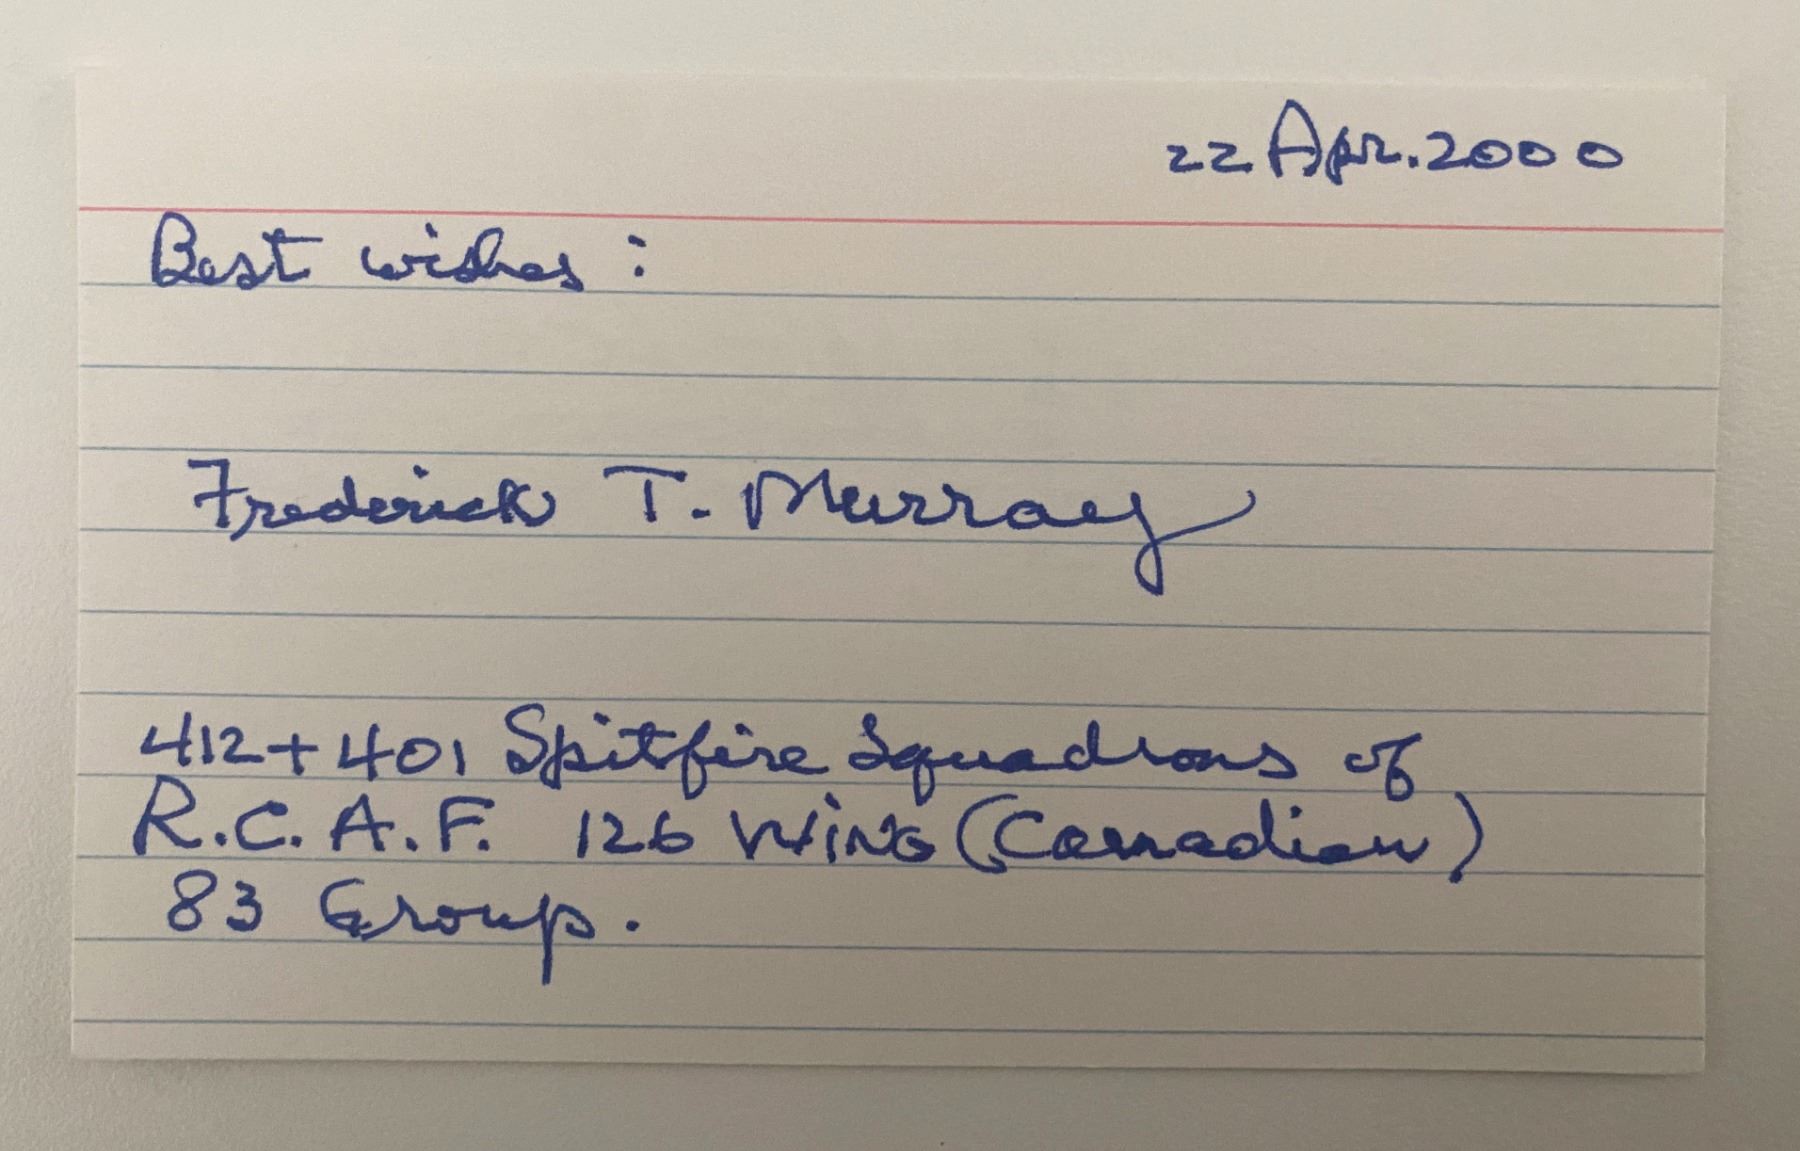 22 Apr. 2000
Best wishes:
Frederick T. Murray
412 + 401 Spitfire Squadrons of
R.C.A.F. 126 WING (Canadian)
83 Group.